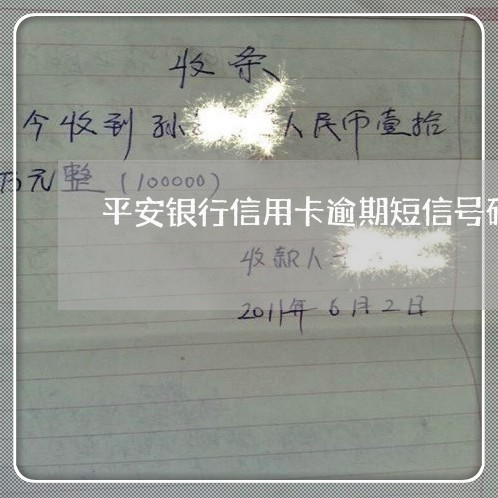 收条
今收到孙 人民币壹拾
万元整（100000）
平安银行信用卡逾期短信号
收款人
2011年6月2日